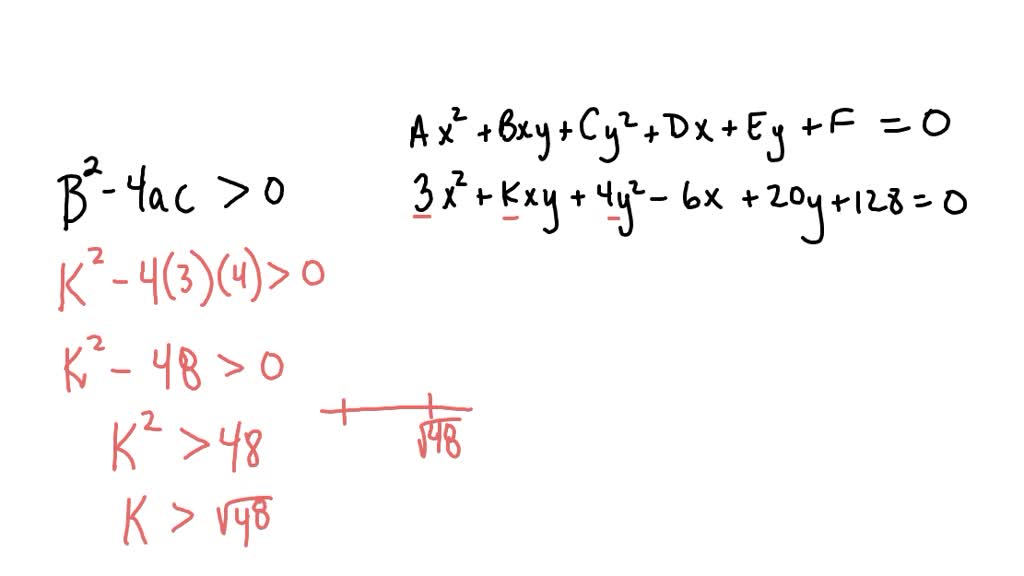 Ax² + Bxy + Cy² + Dx + Ey + F = 0
3x² + Kxy + 4y² - 6x + 20y + 128 = 0
B² - 4ac > 0
K² - 4(3)(4) > 0
K² - 48 > 0
K² > 48
K > √48
√48